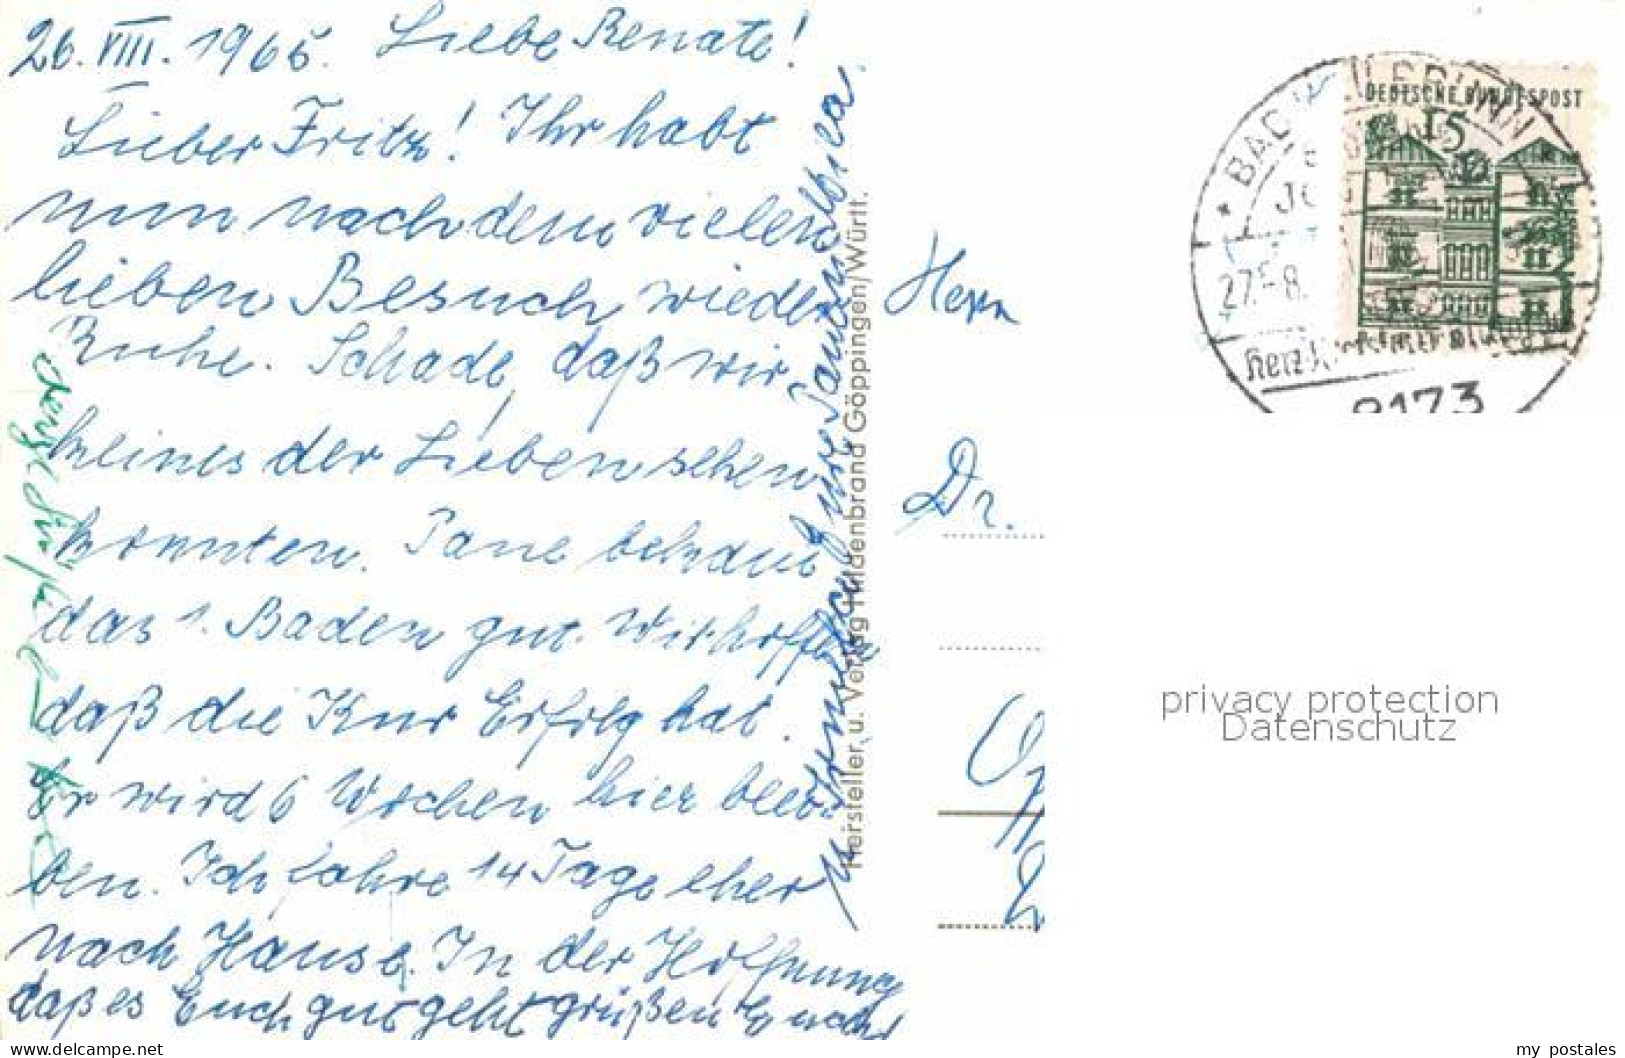 26. VIII. 1965. Liebe Renate!
Lieber Fritz! Ihr habt
nun nach dem vielen
lieben Besuch wieder
Ruhe. Schade, daß wir
keines der Lieben sehen
konnten. bekam
das 1. Baden gut. Wir hoffen
daß die Kur Erfolg hat.
Er wird 6 Wochen hier blei-
ben. Ich fahre 14 Tage eher
nach Hause. In der Hoffnung
daß es Euch gut geht grüßen Euch
Hersteller u. Verlag Hildenbrand Göppingen/Württ.
Herrn
Dr.
DEUTSCHE BUNDESPOST
15
BAD HEILBRUNN
27.-8.
8173
privacy protection
Datenschutz
www.delcampe.net
my_postales